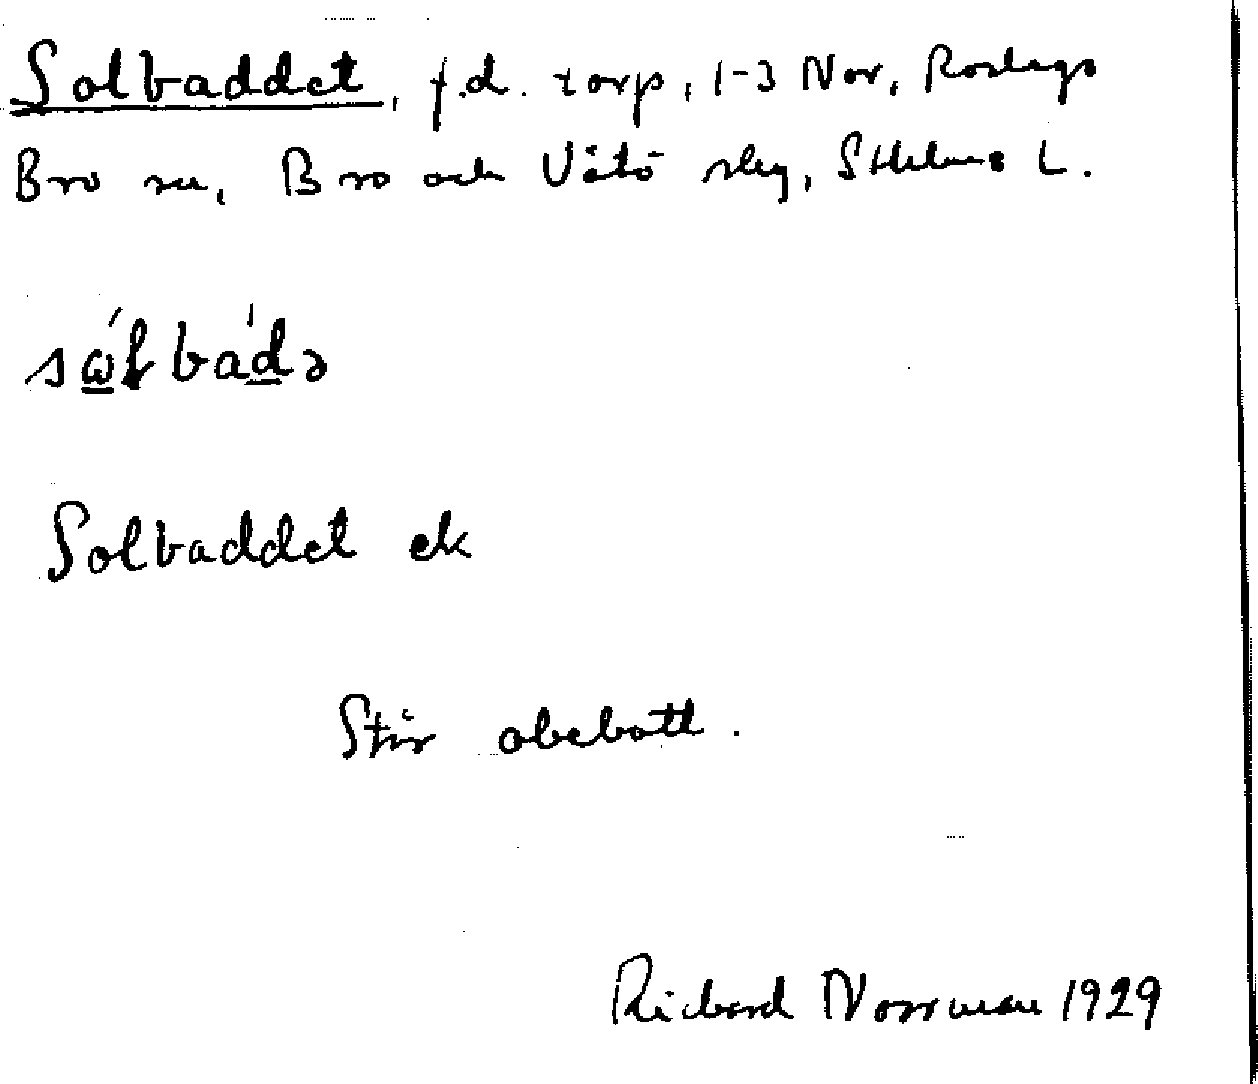 Solbaddet, f.d. torp, 1-3 Nor, Roslags
Bro sn, Bro och Vätö skg, Sthlms L.
sώ̲ɫbád̲ə
Solbaddet ek
Står obebott.
Richard Norrman 1929